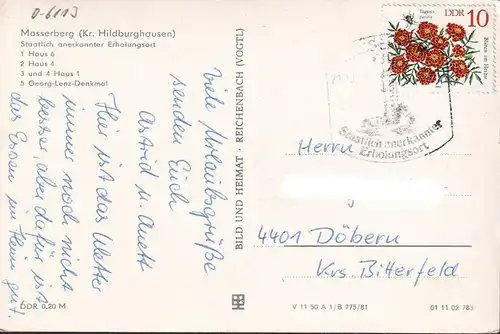 0-6113
Masserberg (Kr. Hildburghausen)
Staatlich anerkannter Erholungsort
1 Haus 6
2 Haus 4
3 und 4 Haus 1
5 Georg-Lenz-Denkmal
Viele Urlaubsgrüße
senden Euch
Astrid u. Anett
Hier ist das Wetter
immer noch nicht
besser, aber dafür ist
das Essen im Heim gut.
DDR 0,20 M
BILD UND HEIMAT · REICHENBACH (VOGTL)
DDR 10
Tagetes patula
Blumen im Herbst
Staatlich anerkannter
Erholungsort
Herrn
4401 Döbern
Krs. Bitterfeld
V 11 50 A 1/B 775/81
01 11 02 783